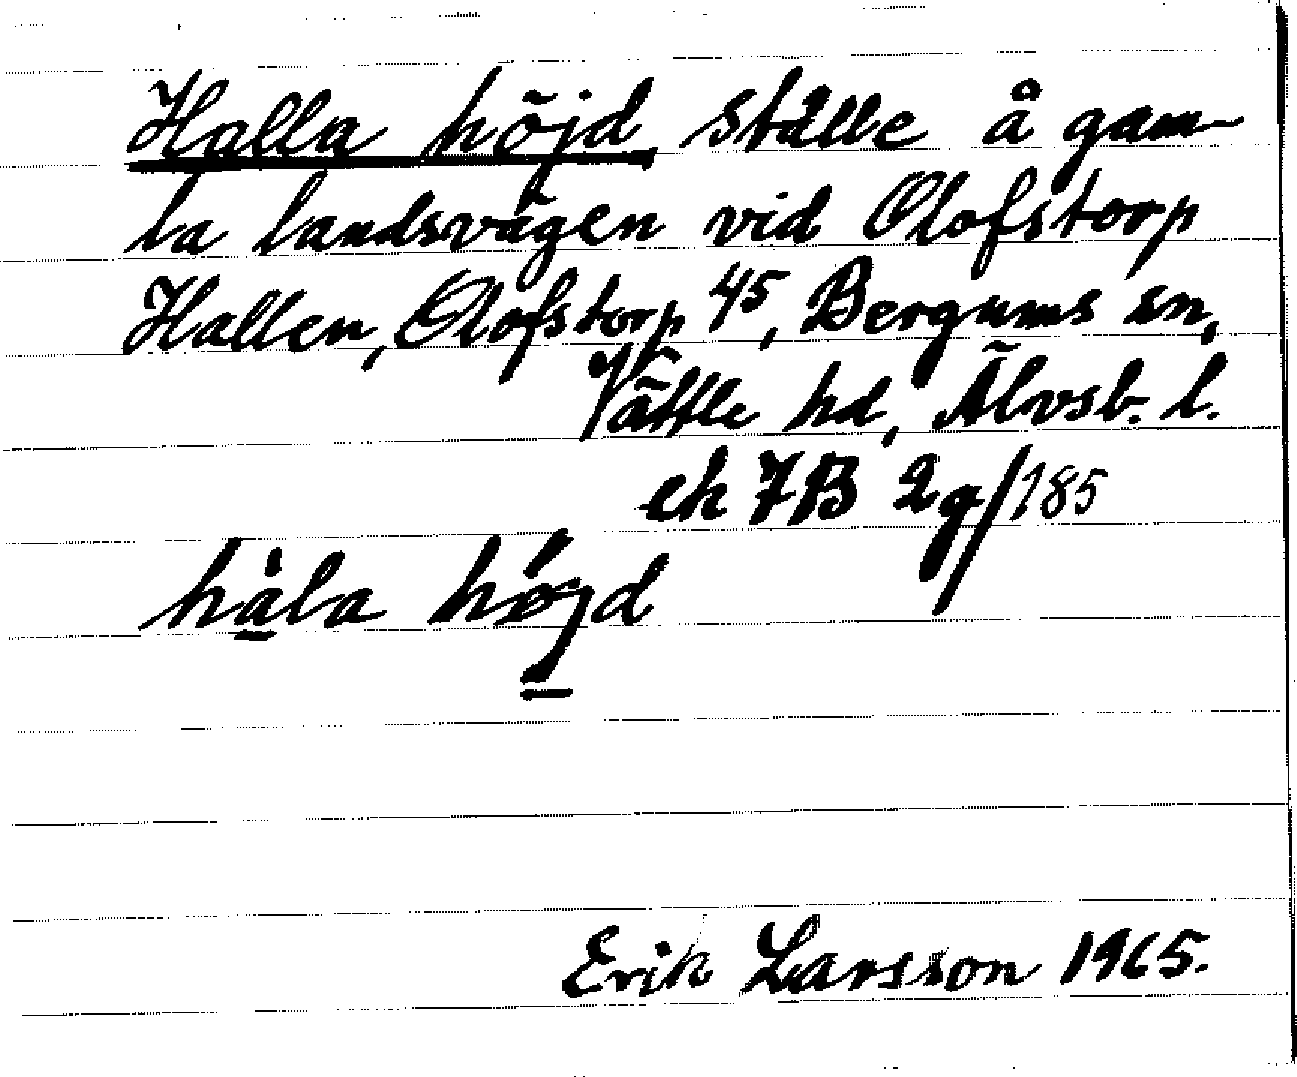 Halla höjd, ställe å gam-
la landsvägen vid Olofstorp
Hallen, Olofstorp 45, Bergums sn,
Vättle hd, Älvsb. l.
ek 7B 2g/185
hàla höjd
Erik Larsson 1965.